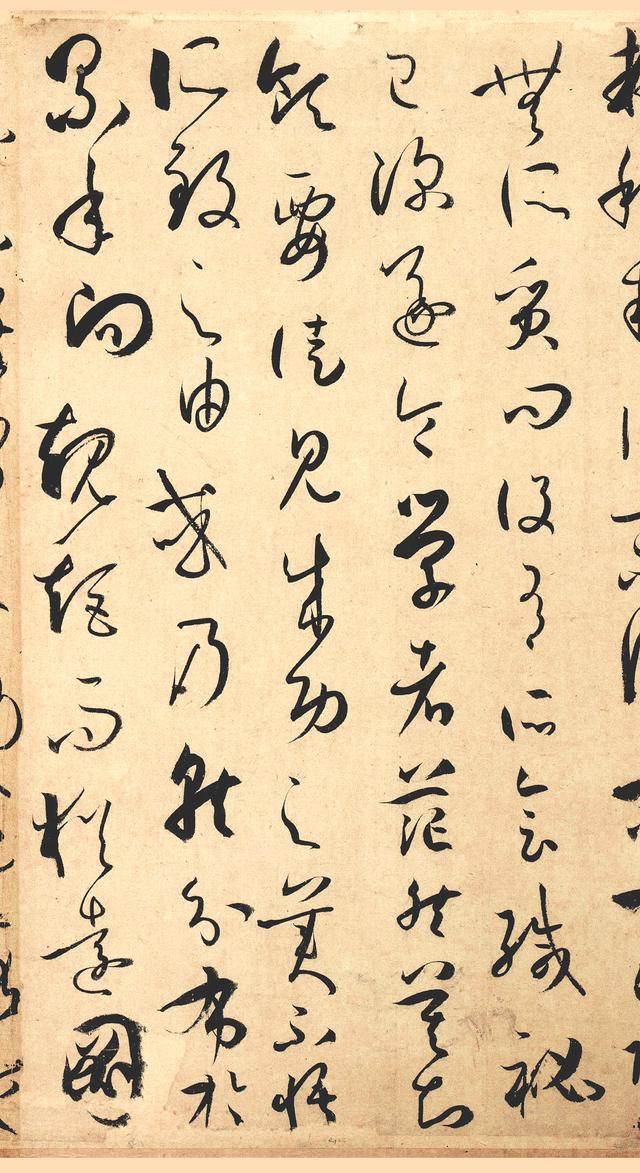 無所質問設有所會緘秘
已深遂令學者茫然莫知
領要徒見成功之美不悟
所致之由或乃就分布於
累年向規矩而猶遠圖